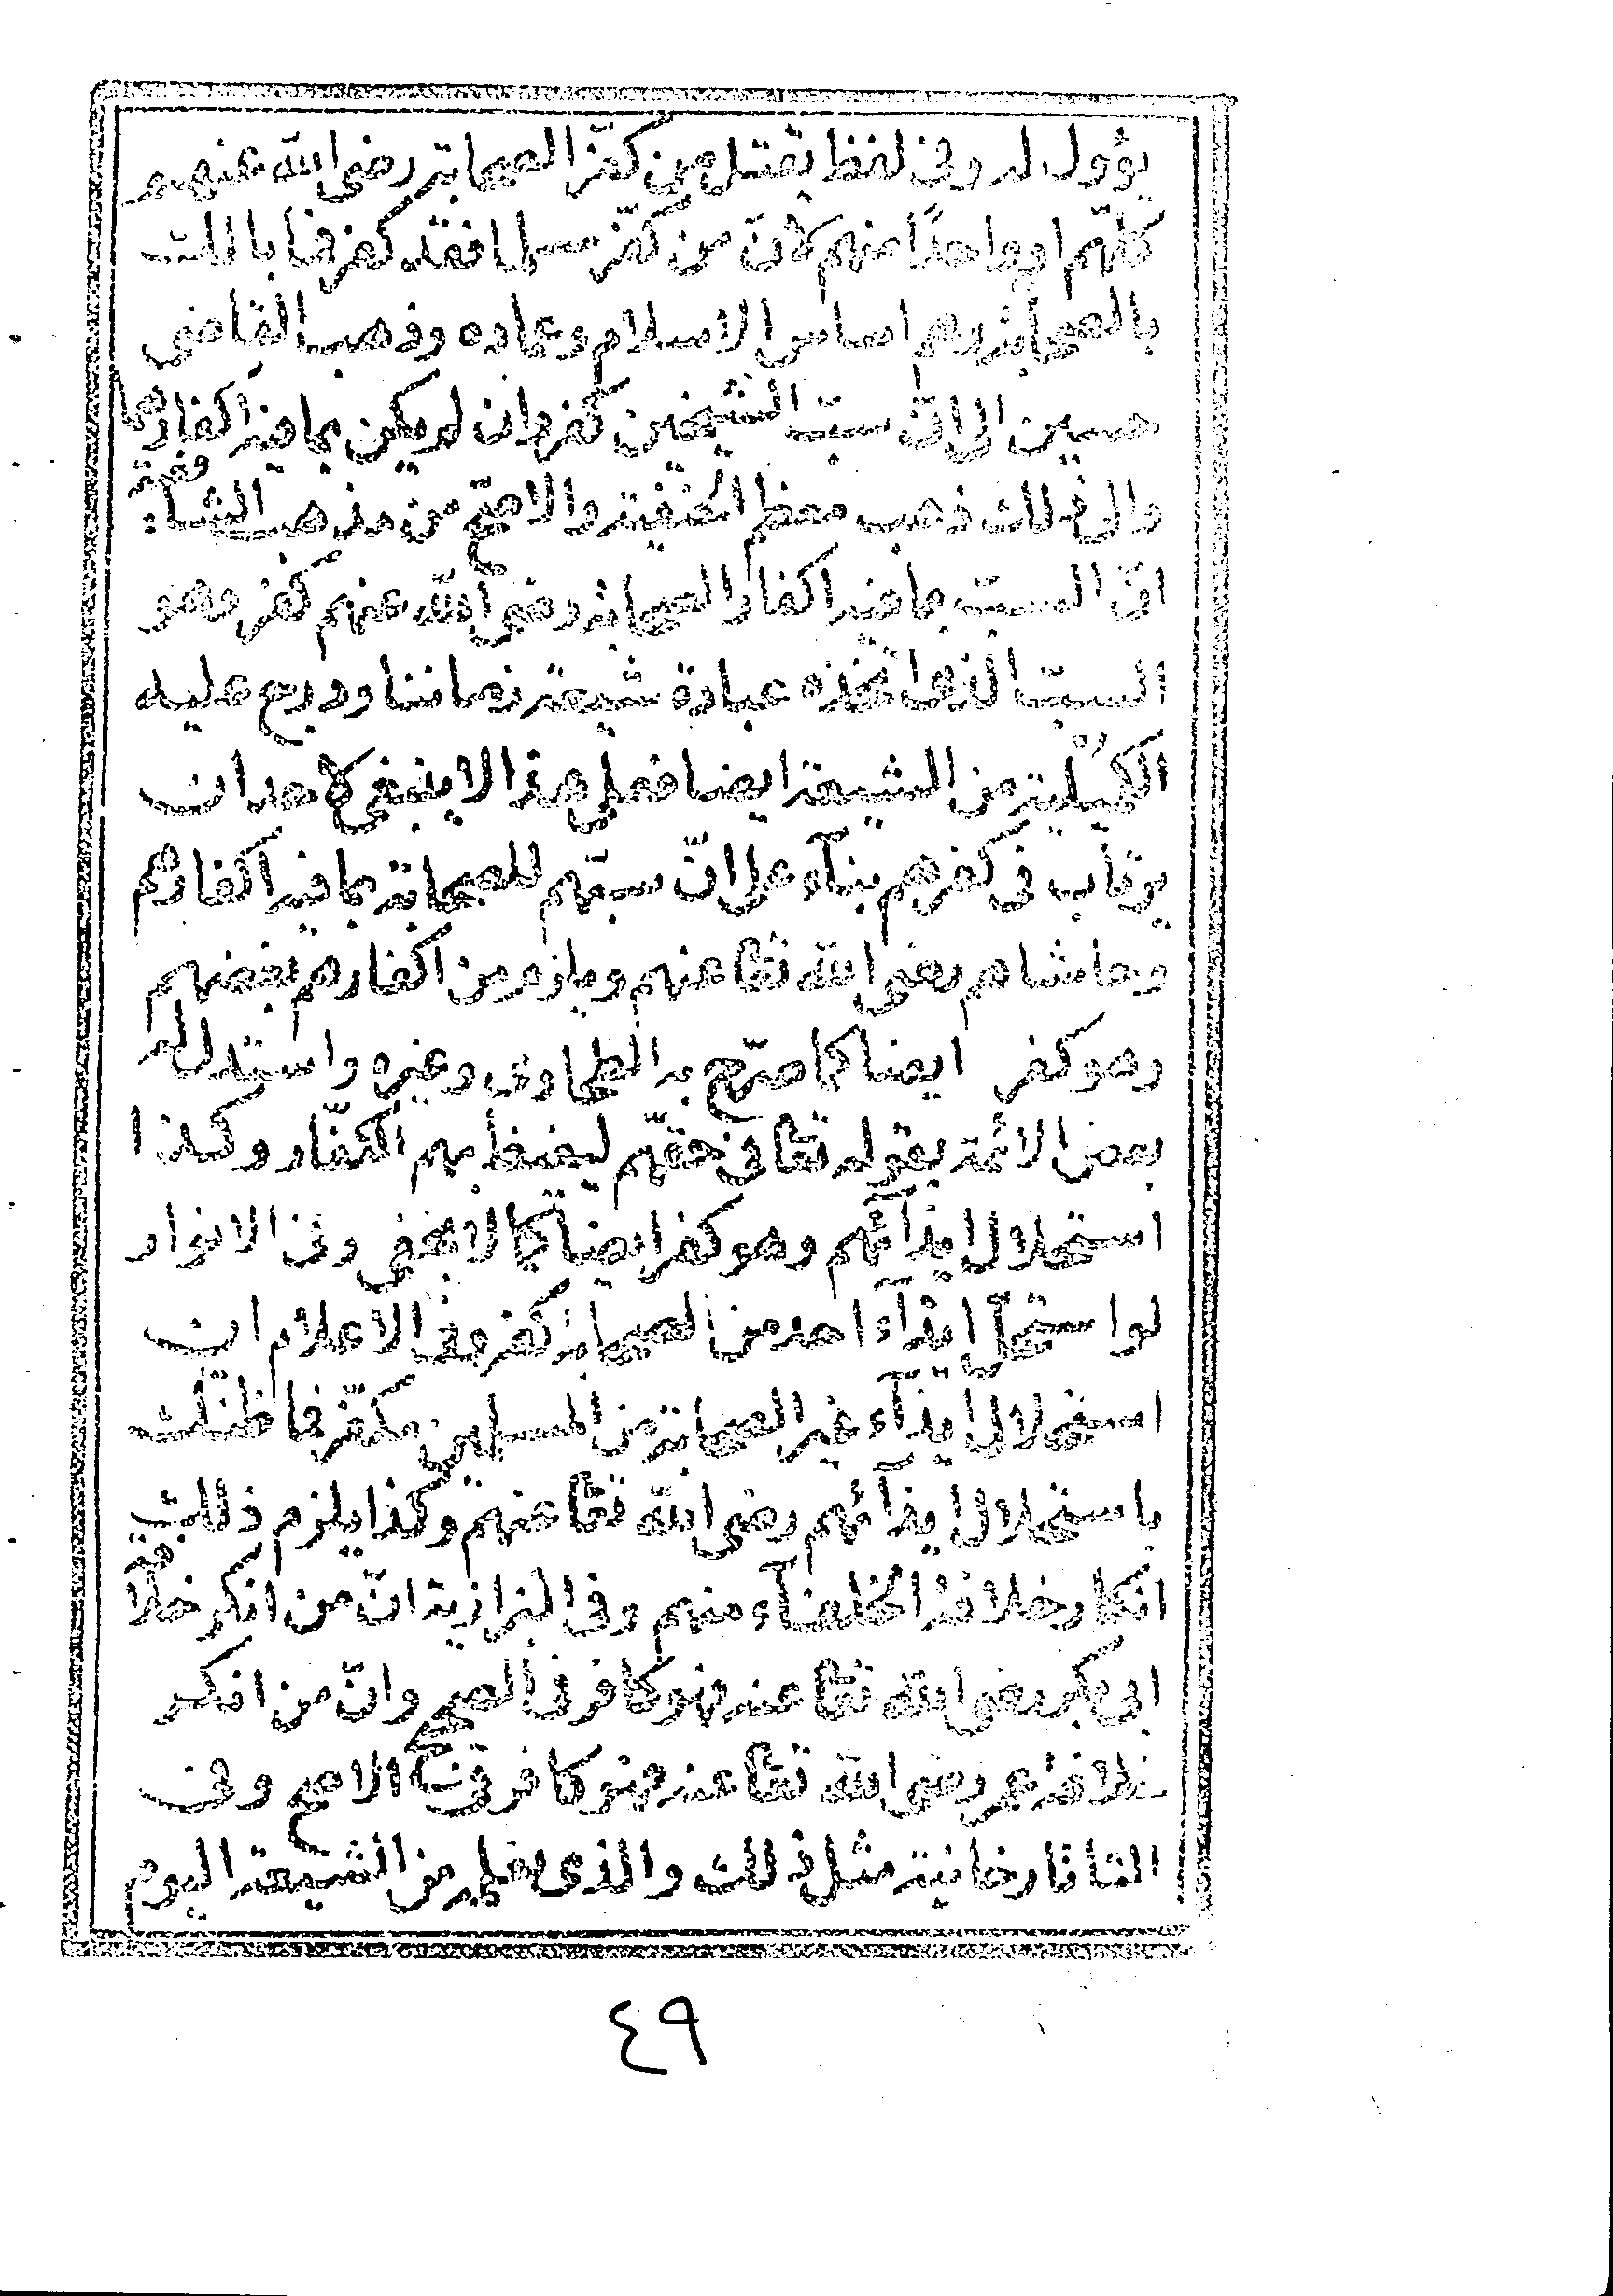 يؤول له وفى لفظ يقتل من كفّر الصحابة رضى الله عنهم
كلّهم او واحدًا منهم لانّ من كفّر مسلما فقد كفر فما بالك
بالصحابة وهم اساس الاسلام وعماده وذهب القاضى
حسين الى انّ سبّ الشيخين كفر وان لم يكن بما فيه اكفارهما
والى ذلك ذهب معظم الحنفيّة والاصحّ من مذهب الشافعية
انّ السبّ بما فيه اكفار الصحابة رضى الله عنهم كفر وهو
السبّ الذى اتّخذه عبادة شيعة زماننا ودرج عليه
الكُمَيلية من الشيعة ايضا فعلى هذا لا ينبغى لاحد ان
يرتاب فى كفرهم بنآء على انّ سبّهم للصحابة بما فيه اكفارهم
وحاشاهم رضى الله تعا عنهم ويلزم من اكفارهم بغضهم
وهو كفر ايضا كما صرّح به الطحاوى وغيره واستدل له
بعض الائمة بقوله تعا فى حقّهم ليغيظ بهم الكفّار وكذا
استحلال ايذآئهم وهو كفر ايضا كما لا يخفى وفى الانوار
لو استحلّ ايذآء احد من الصحابة كفر وفى الاعلام ان
استحلال ايذآء غير الصحابة من المسلمين مكفّر فما ظنّك
باستحلال ايذآئهم رضى الله تعا عنهم وكذا يلزم ذلك
انكار خلافة الخلفآء منهم وفى البزازية انّ من انكر خلافة
ابى بكر رضى الله تعا عنه فهو كافر فى الصحيح وانّ من انكر
خلافة عمر رضى الله تعا عنه فهو كافر فى الاصح وفى
التاتارخانية مثل ذلك والذى يعلم من الشيعة اليوم
٤٩